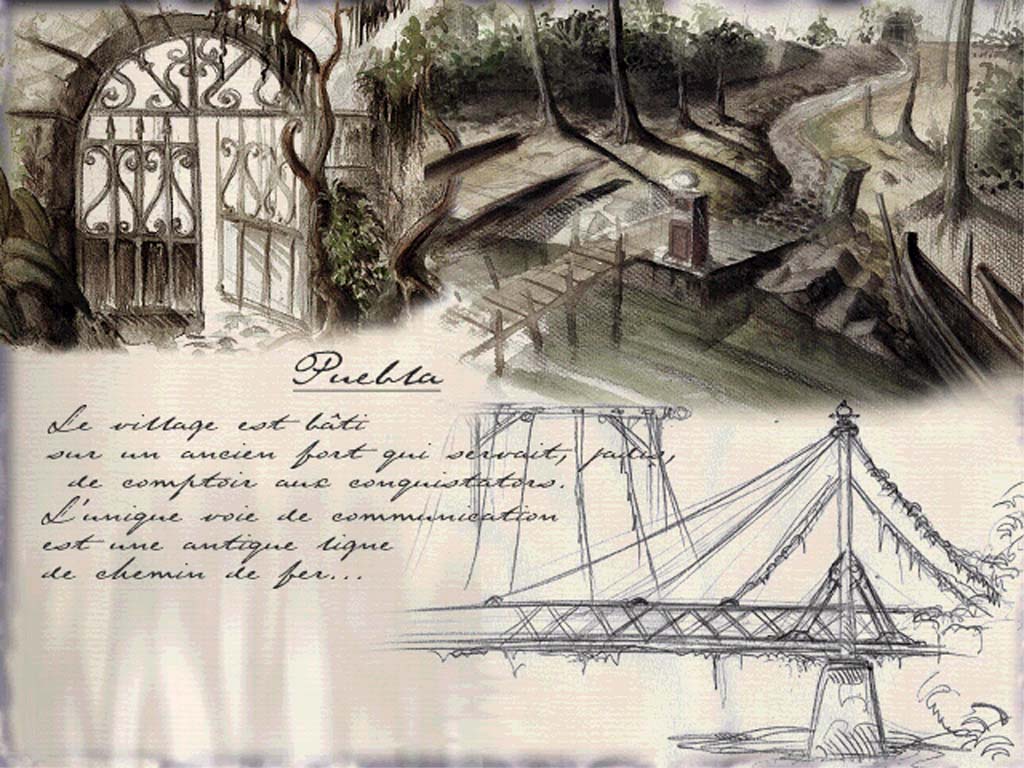 Puebla
Le village est bâti
sur un ancien fort qui servait, jadis,
de comptoir aux conquistators.
L'unique voie de communication
est une antique ligne
de chemin de fer...